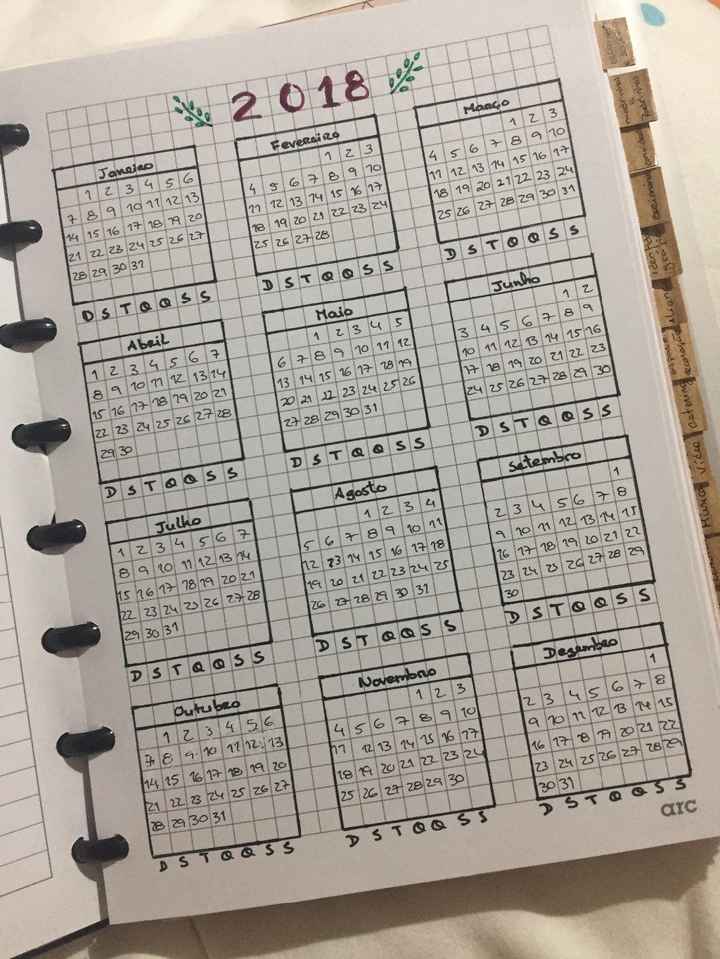 2018
Janeiro
1 2 3 4 5 6
7 8 9 10 11 12 13
14 15 16 17 18 19 20
21 22 23 24 25 26 27
28 29 30 31
D S T Q Q S S
Fevereiro
1 2 3
4 5 6 7 8 9 10
11 12 13 14 15 16 17
18 19 20 21 22 23 24
25 26 27 28
D S T Q Q S S
Março
1 2 3
4 5 6 7 8 9 10
11 12 13 14 15 16 17
18 19 20 21 22 23 24
25 26 27 28 29 30 31
D S T Q Q S S
Abril
1 2 3 4 5 6 7
8 9 10 11 12 13 14
15 16 17 18 19 20 21
22 23 24 25 26 27 28
29 30
D S T Q Q S S
Maio
1 2 3 4 5
6 7 8 9 10 11 12
13 14 15 16 17 18 19
20 21 22 23 24 25 26
27 28 29 30 31
D S T Q Q S S
Junho
1 2
3 4 5 6 7 8 9
10 11 12 13 14 15 16
17 18 19 20 21 22 23
24 25 26 27 28 29 30
D S T Q Q S S
Julho
1 2 3 4 5 6 7
8 9 10 11 12 13 14
15 16 17 18 19 20 21
22 23 24 25 26 27 28
29 30 31
D S T Q Q S S
Agosto
1 2 3 4
5 6 7 8 9 10 11
12 13 14 15 16 17 18
19 20 21 22 23 24 25
26 27 28 29 30 31
D S T Q Q S S
Setembro
1
2 3 4 5 6 7 8
9 10 11 12 13 14 15
16 17 18 19 20 21 22
23 24 25 26 27 28 29
30
D S T Q Q S S
Outubro
1 2 3 4 5 6
7 8 9 10 11 12 13
14 15 16 17 18 19 20
21 22 23 24 25 26 27
28 29 30 31
D S T Q Q S S
Novembro
1 2 3
4 5 6 7 8 9 10
11 12 13 14 15 16 17
18 19 20 21 22 23 24
25 26 27 28 29 30
D S T Q Q S S
Dezembro
1
2 3 4 5 6 7 8
9 10 11 12 13 14 15
16 17 18 19 20 21 22
23 24 25 26 27 28 29
30 31
D S T Q Q S S
arc
Vídeo
Música